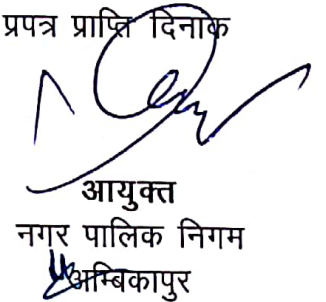 प्रपत्र प्राप्ति दिनांक
आयुक्त
नगर पालिक निगम
अम्बिकापुर